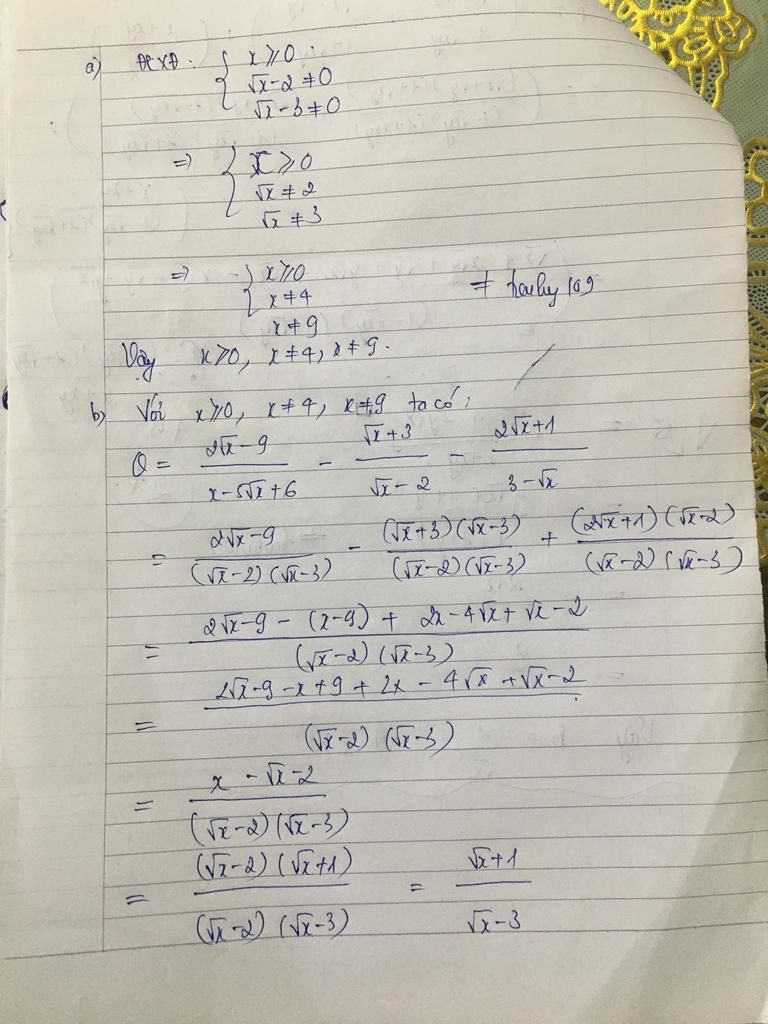 a) ĐKXĐ: { x ⩾ 0
√x - 2 ≠ 0
√x - 3 ≠ 0
⇒ { x ⩾ 0
√x ≠ 2
√x ≠ 3
⇒ { x ⩾ 0
x ≠ 4
x ≠ 9
Vậy x ⩾ 0, x ≠ 4, x ≠ 9.
b) Với x ⩾ 0, x ≠ 4, x ≠ 9 ta có:
Q = (2√x - 9)/(x - 5√x + 6) - (√x + 3)/(√x - 2) - (2√x + 1)/(3 - √x)
= (2√x - 9)/((√x - 2)(√x - 3)) - ((√x + 3)(√x - 3))/((√x - 2)(√x - 3)) + ((2√x + 1)(√x - 2))/((√x - 2)(√x - 3))
= (2√x - 9 - (x - 9) + 2x - 4√x + √x - 2)/((√x - 2)(√x - 3))
= (2√x - 9 - x + 9 + 2x - 4√x + √x - 2)/((√x - 2)(√x - 3))
= (x - √x - 2)/((√x - 2)(√x - 3))
= ((√x - 2)(√x + 1))/((√x - 2)(√x - 3)) = (√x + 1)/(√x - 3)